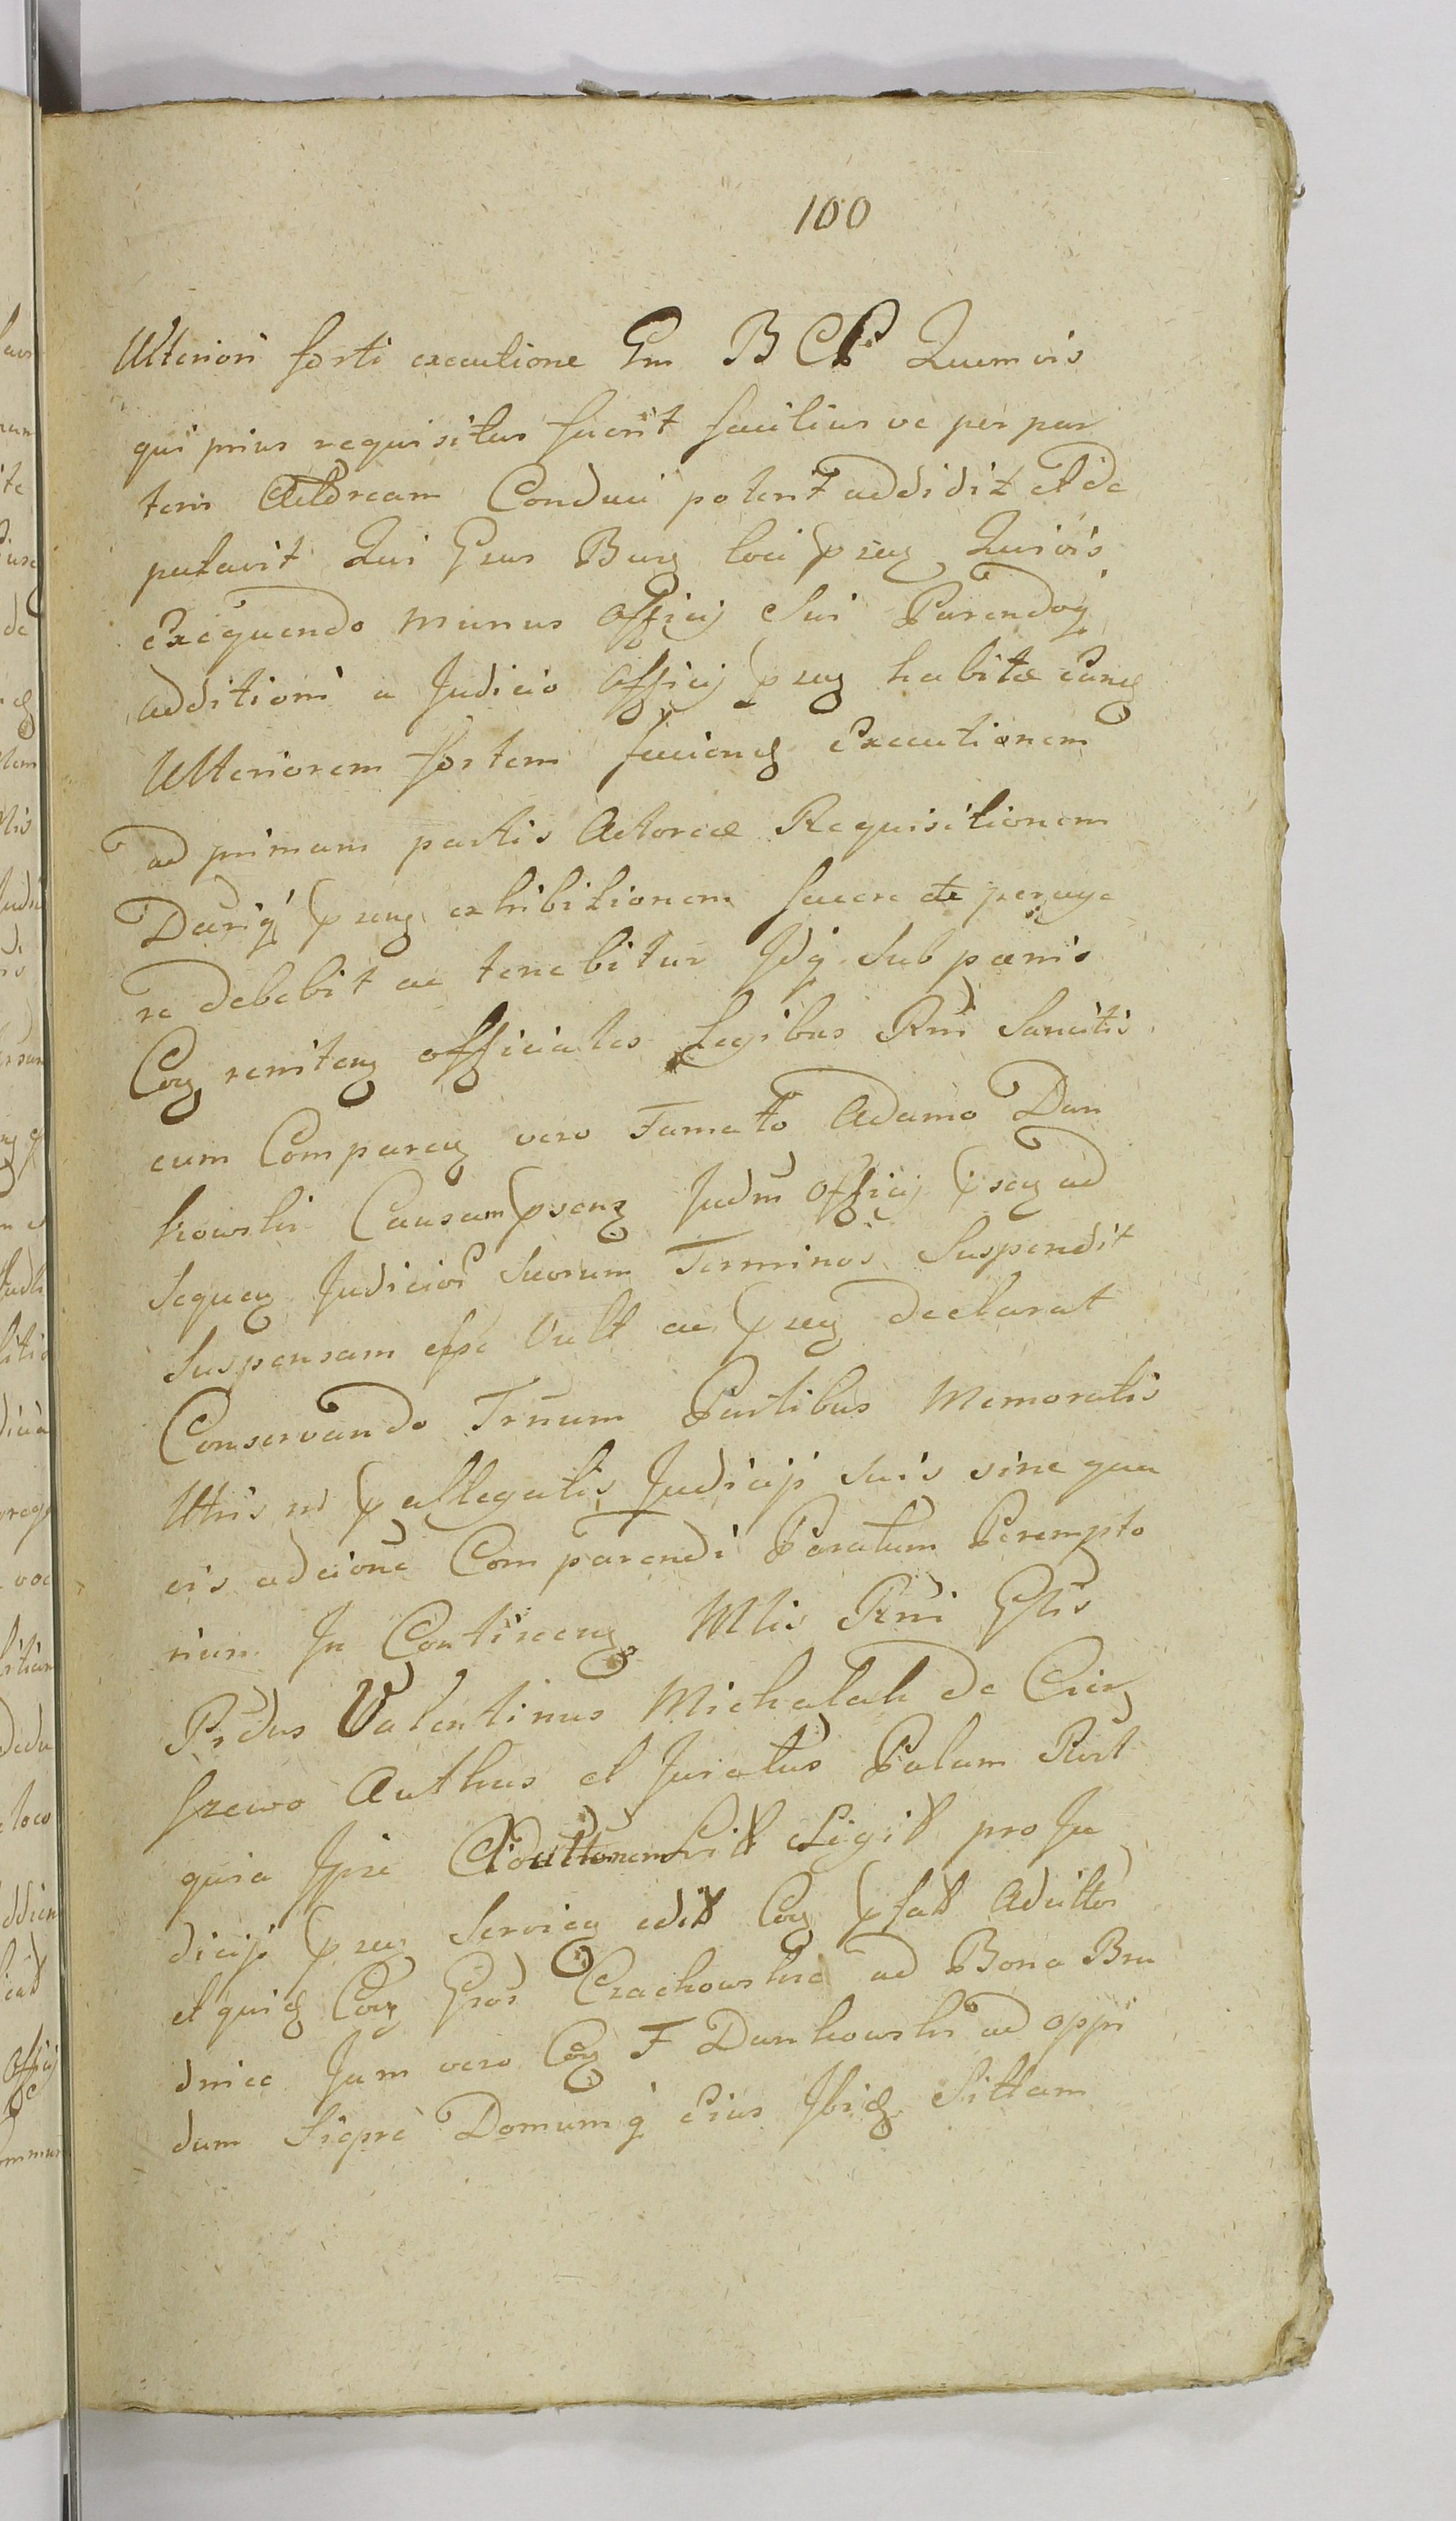 100
Ulteriori forti executione Gm B C P Quemvis
qui prius requisitus fuerit facilius ve per par
tem Actoream Conduci poterit addidit et de
putavit Qui Gsus Burg loci psng Quivis
Exequendo munus Officij Sui Parendoq
additioni a Judicio Officij psng habitæ eamq
Ulteriorem fortem facieng Executionem
ad primam partis Actoreæ Requisitionem
Decriq psng exhibitionem facere et perage
re debebit ac tenebitur Idq Sub pœnis
Cog reniteng officiales Legibus Rni Sancitis
cum Compareng vero Famato Adamo Dan
kowski Causam pseng Judm Officij pseng ad
Sequeng Judicior Suorum Terminos Suspendit
Suspensam esse Vult ac pseng declarat
Conservando Trnum Partibus Memoratis
Utris in pallegatis Judicijs suis sine qua
vis adcione Comparendi Paratum Perempto
rium In Contineng Mtis Rni Gtis
Prdus Valentinus Michalak de Cier
szewo Authus et Juratus Palam Rert
quia Ipse Adcittonem Legit pro Ju
dicijs pseng Servieng edit Cog psat Adcittor
et quidq Cog Gsos Czachowskie ad Bona Bru
dnice Jam vero Cog F Dankowski ad oppi
dum Siepre Domumq Eius Ibidq Sittam